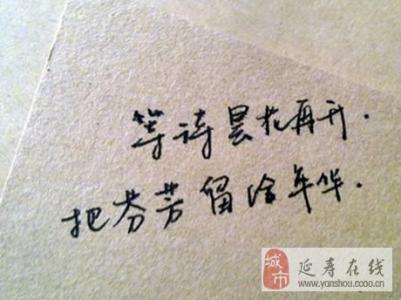 等诗昙花再开.
把芬芳留给年华.
城市
延寿在线
www.yanshou.ccoo.cn